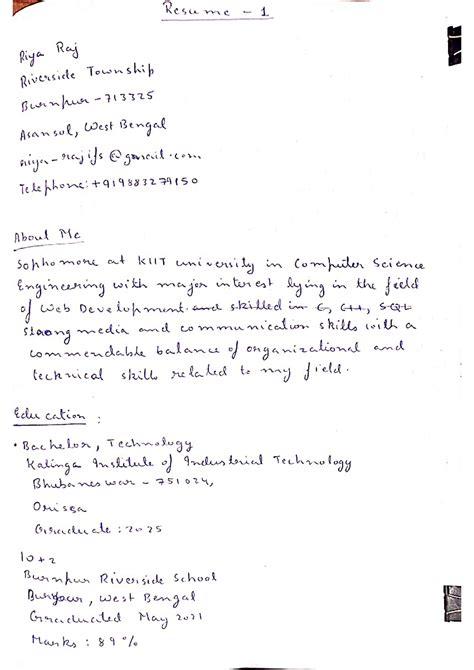 Resume - 1
Riya Raj
Riverside Township
Burnpur - 713325
Asansol, West Bengal
riya-rajifs@gmail.com
Telephone: +919883279150
About Me
Sophomore at KIIT university in Computer Science
Engineering with major interest lying in the field
of Web Development and skilled in C, C++, SQL
strong media and communication skills with a
commendable balance of organizational and
technical skills related to my field.
Education :
• Bachelor, Technology
Kalinga Institute of Industrial Technology
Bhubaneswar - 751024,
Orissa
Graduate : 2025
10+2
Burnpur Riverside School
Burnpur, West Bengal
Graduated May 2021
Marks : 89%